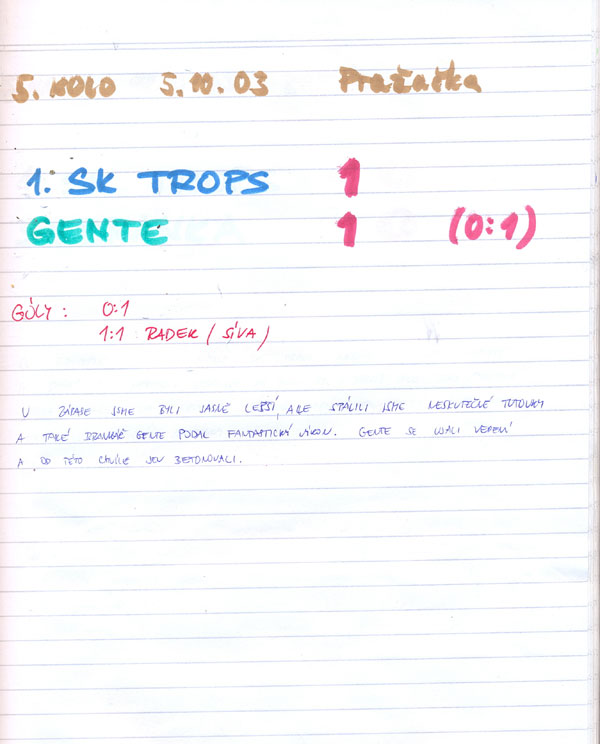 5. KOLO 5.10.03 Pražačka
1. SK TROPS 1
GENTE 1 (0:1)
GÓLY: 0:1
1:1 RADEK (SÍVA)
V ZÁPASE JSME BYLI JASNĚ LEPŠÍ, ALE STÁLILI JSME NESKUTEČNÉ TUTOVKY
A TAKÉ BRANKÁŘ GENTE PODAL FANTASTICKÝ VÝKON. GENTE SE UJALI VEDENÍ
A OD TÉTO CHVÍLE JEN BETONOVALI.